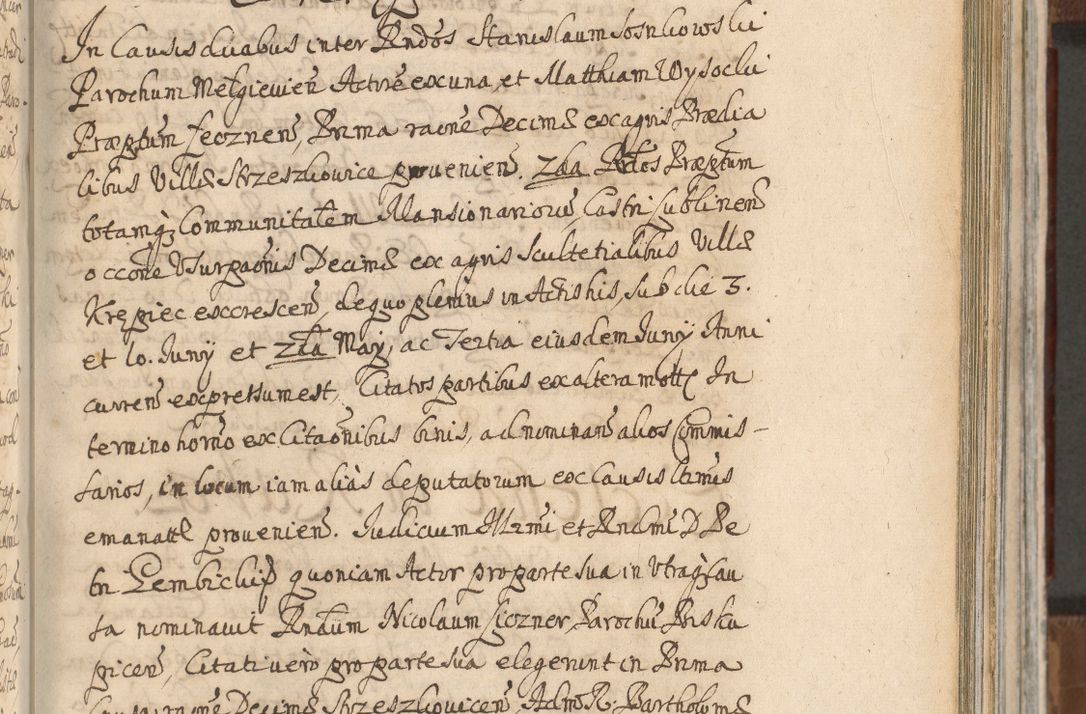 In Causis duabus inter Rndos Stanislaum Sosnkowski
Parochum Mełgiewien Actore ex una, et Matthiam Wysocki
Præptum Łecznen, Prima raone Decimę ex agris Prædia
libus Villę Strzeszkowice prouenien. 2da Rdos Præptum
totamq3 Communitatem Mansionarioru Castri Lublinen
occone Vsurpaonis Decimę ex agris Scultetialibus Villę
Krępiec excrescen, de quo plenius in Actis his, sub die 3.
et 10. Junij et 2da Maij, ac Tertia eiusdem Junij Anni
curren expressum est, Citatos partibus ex altera mott. In
termino horno ex Citaonibus binis, ad nominan alios Commis-
sarios, in locum iam aliàs deputatorum ex Causis ltimis
emanatt prouenien. Judicium Illrmi et Rndmi D Pe
tri Gembicki quoniam Actor pro parte sua in Vtraq3 Cau
sa nominauit Rndum Nicolaum Liczner, Parochu Bisku
picen, Citati verò pro parte sua elegerunt in Prima
Causa raone Decimę Strzeszkowicen Adm R. Bartholomę